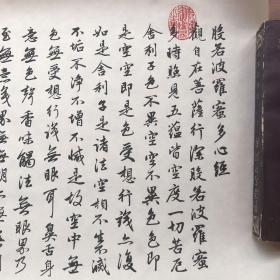 般若波羅蜜多心經
觀自在菩薩行深般若波羅蜜
多時照見五蘊皆空度一切苦厄
舍利子色不異空空不異色色即
是空空即是色受想行識亦復
如是舍利子是諸法空相不生滅
不垢不淨不增不減是故空中無
色無受想行識無眼耳鼻舌身
意無色聲香味觸法無眼界乃
至無意識界無無明亦無無明